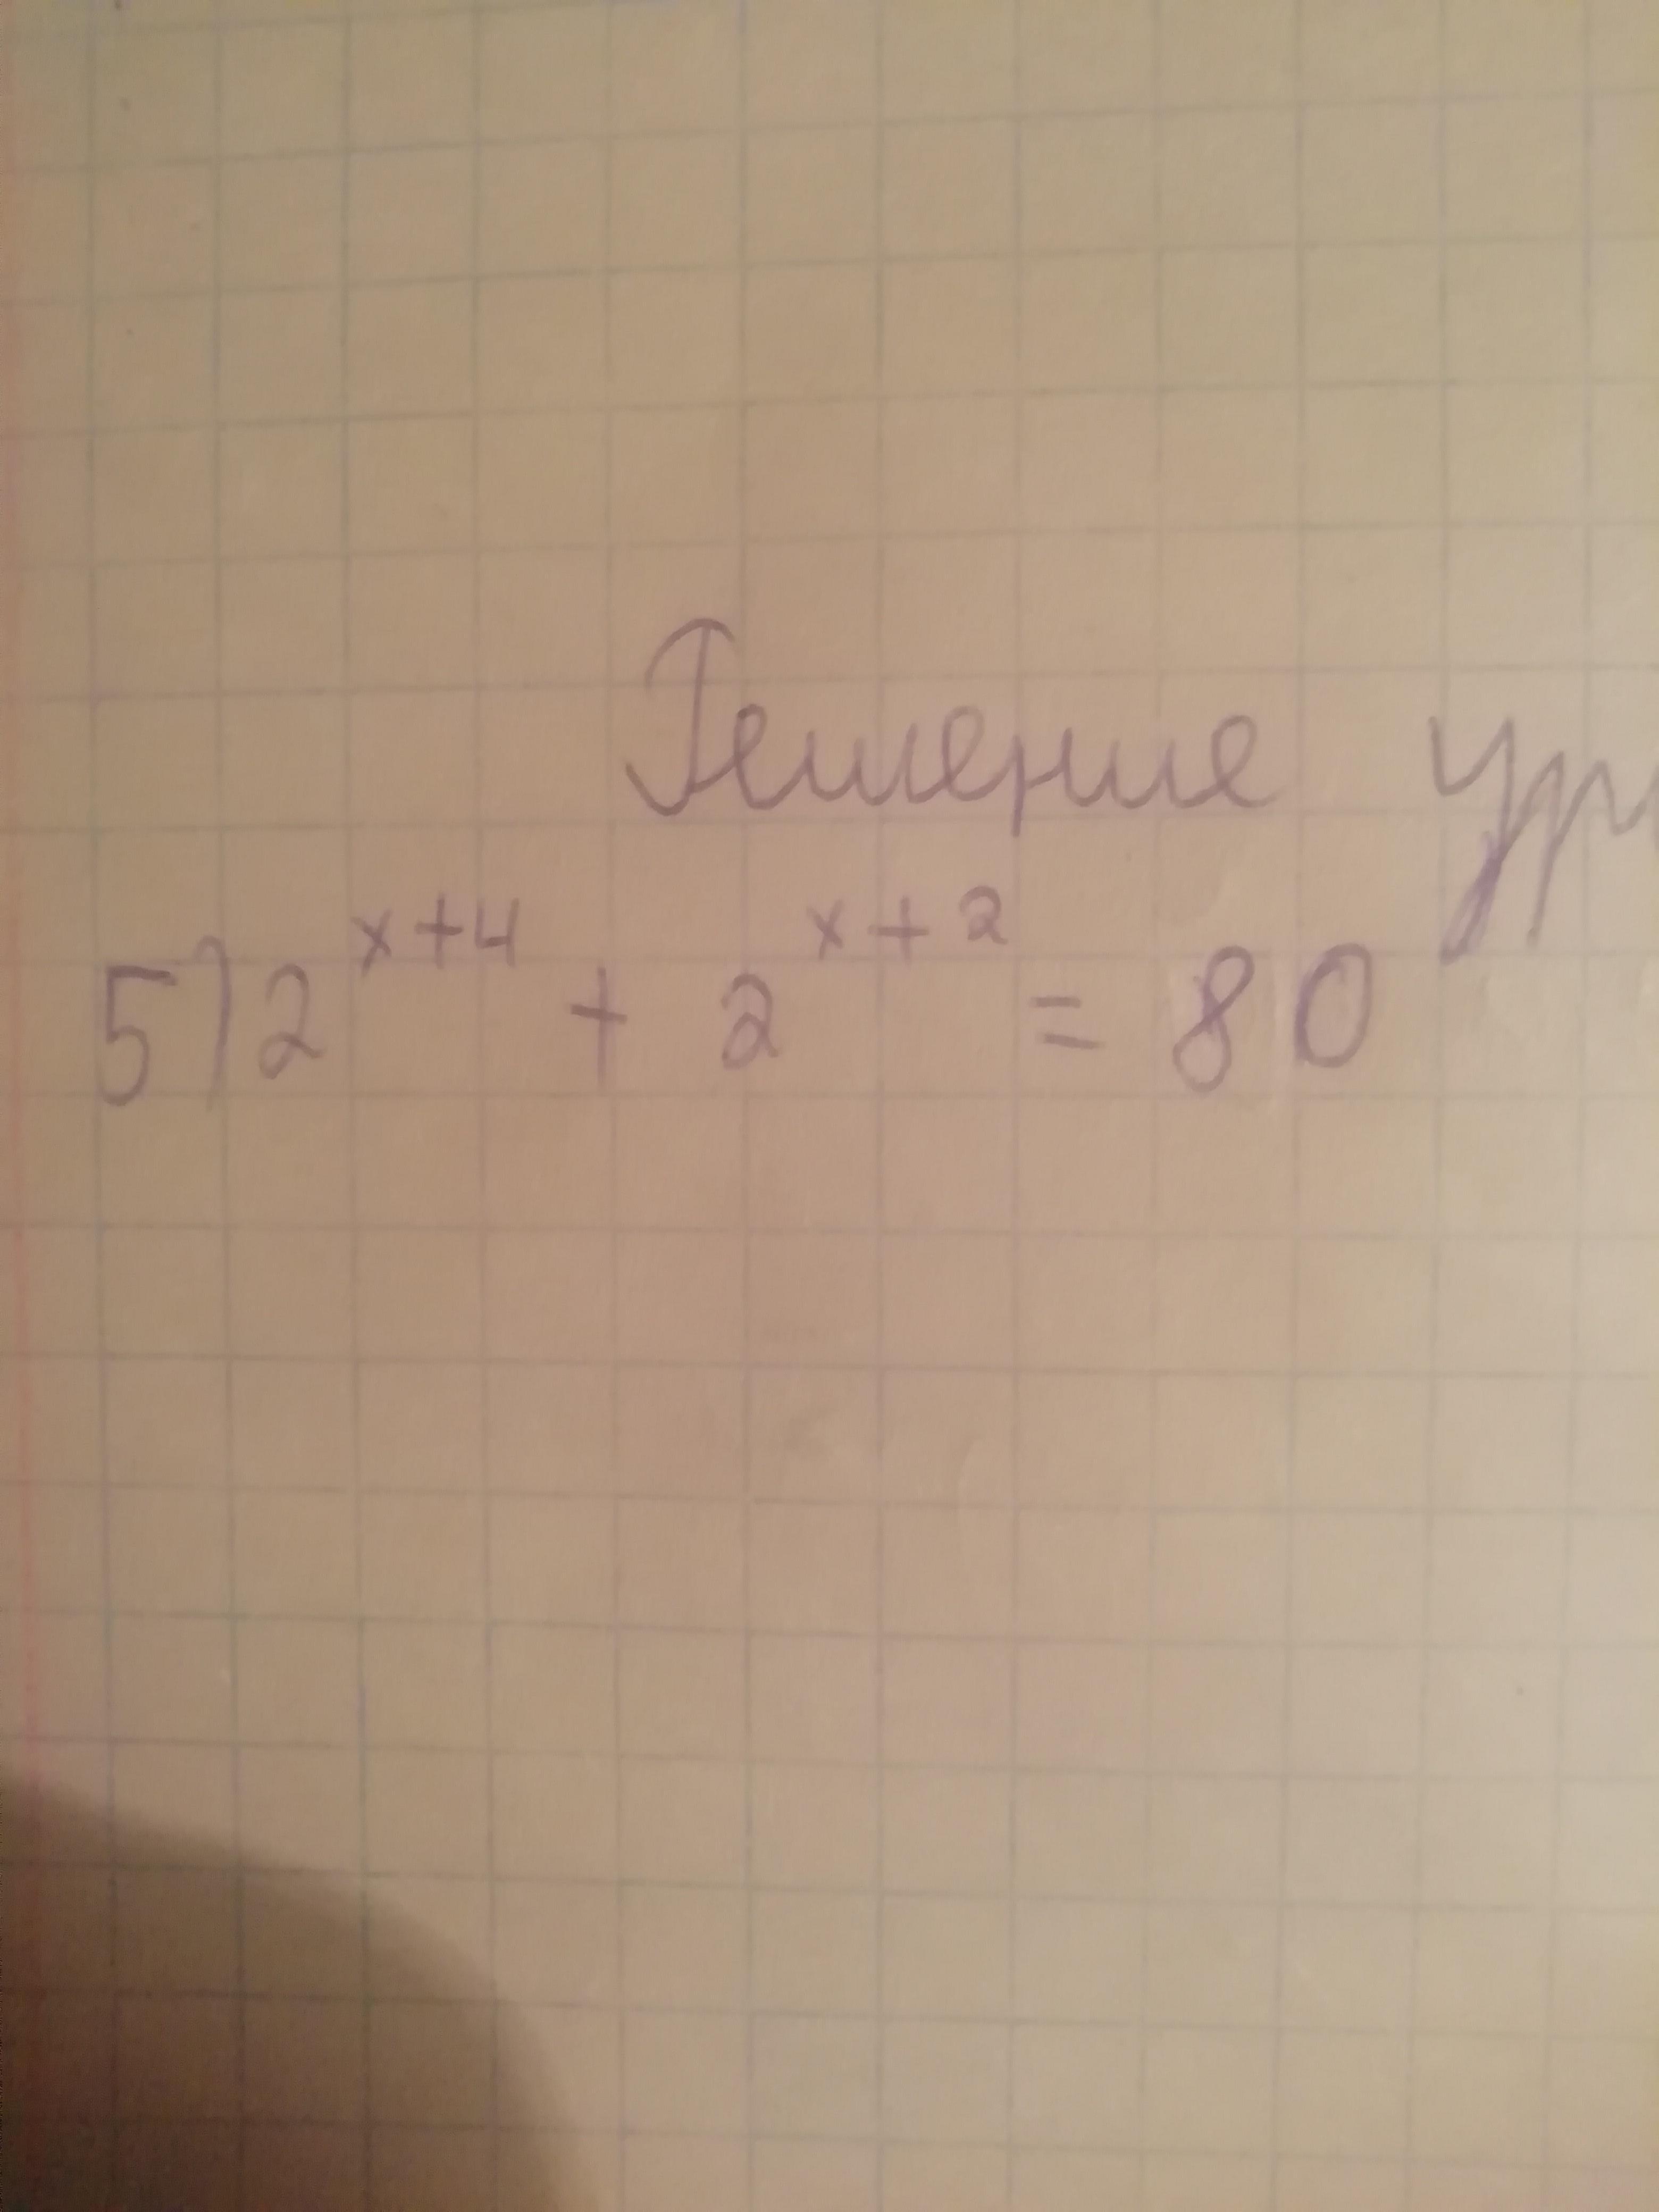 Решение ур
5) 2^{x+4} + 2^{x+2} = 80